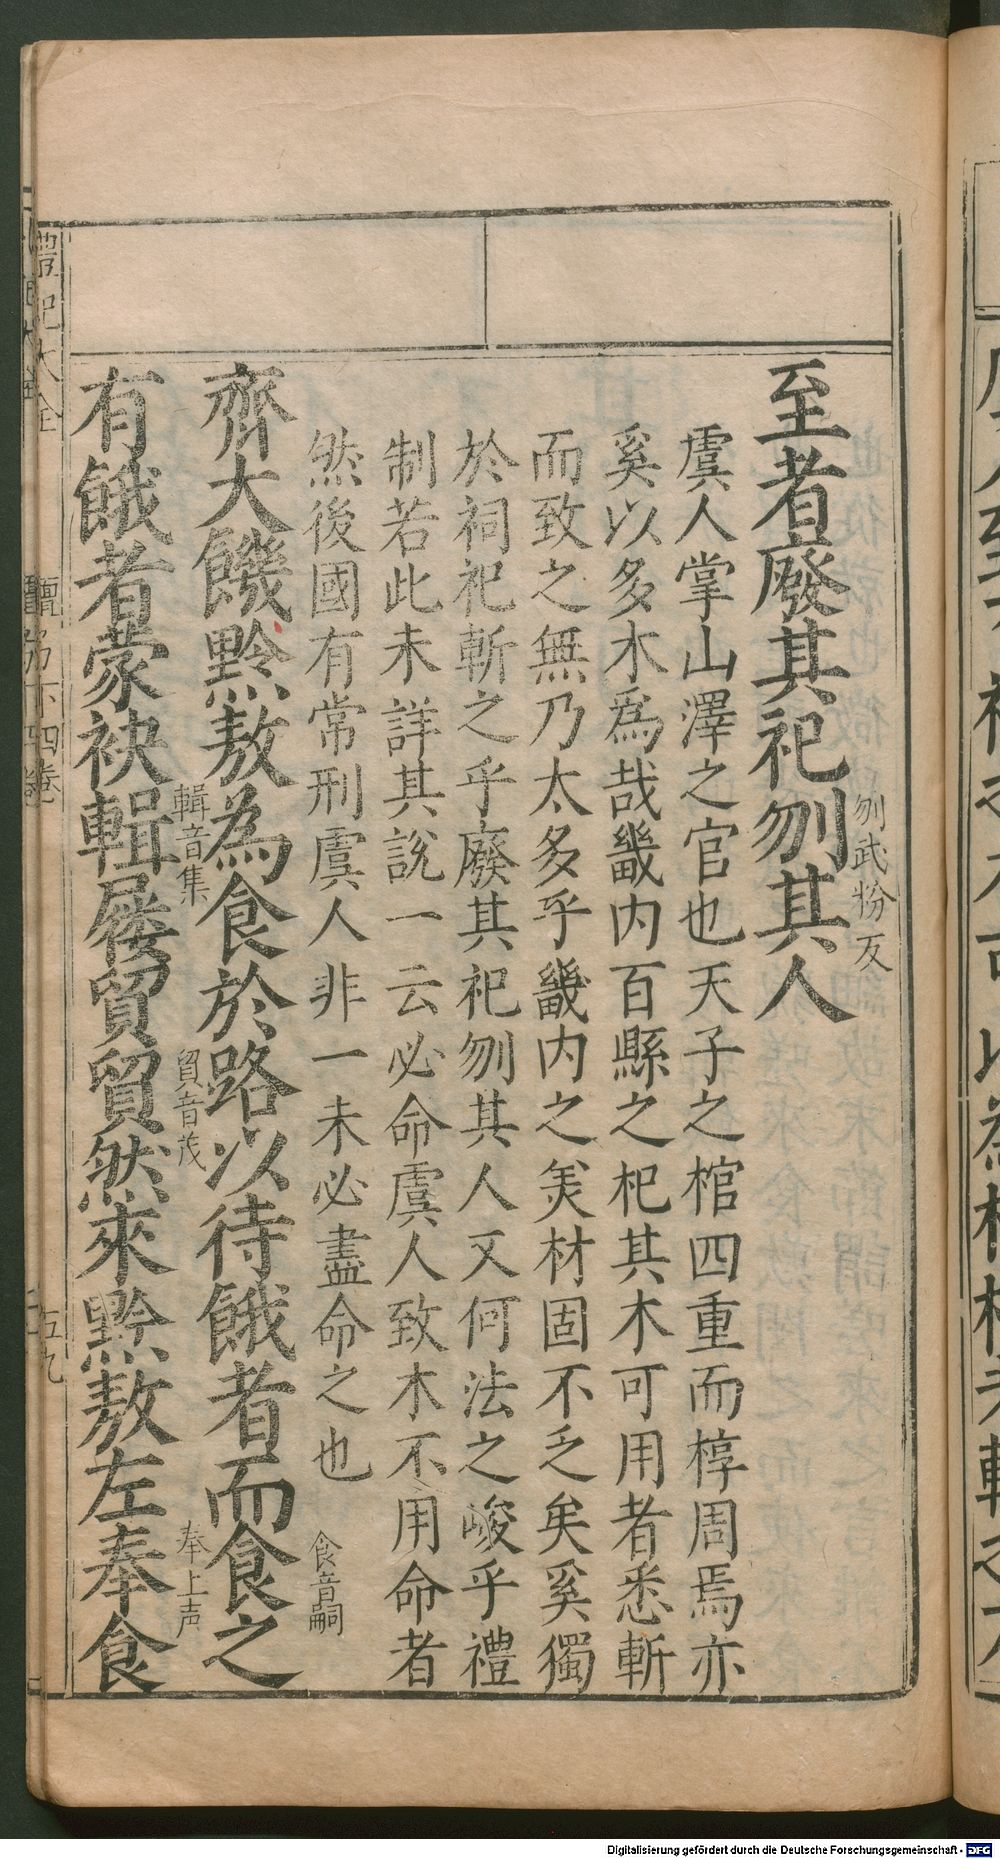 至者廢其祀刎其人
刎武粉反
虞人掌山澤之官也天子之棺四重而椁周焉亦
奚以多木爲哉畿内百縣之杞其木可用者悉斬
而致之無乃太多乎畿内之美材固不乏矣奚獨
於祠祀斬之乎廢其祀刎其人又何法之峻乎禮
制若此未詳其說一云必命虞人致木不用命者
然後國有常刑虞人非一未必盡命之也
食音嗣
齊大饑黔敖為食於路以待餓者而食之
輯音集
貿音茂
奉上声
有餓者蒙袂輯屨貿貿然來黔敖左奉食
禮記大全
檀弓下四卷
五九
Digitalisierung gefördert durch die Deutsche Forschungsgemeinschaft - DFG